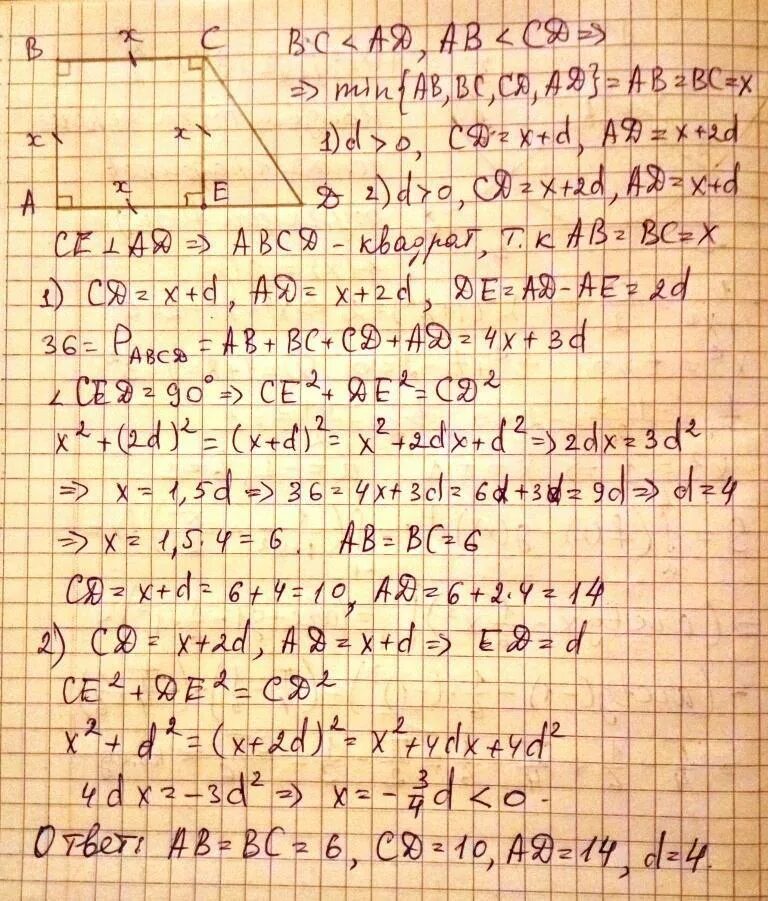 B x C
x x
A x E D
BC < AD, AB < CD ⇒
⇒ min{AB, BC, CD, AD} = AB = BC = x
1) d > 0, CD = x+d, AD = x+2d
2) d > 0, CD = x+2d, AD = x+d
CE ⊥ AD ⇒ ABCD - квадрат, т.к AB = BC = x
1) CD = x+d, AD = x+2d, DE = AD - AE = 2d
36 = P_ABCD = AB + BC + CD + AD = 4x + 3d
∠ CED = 90° ⇒ CE² + DE² = CD²
x² + (2d)² = (x+d)² = x² + 2dx + d² ⇒ 2dx = 3d²
⇒ x = 1,5d ⇒ 36 = 4x + 3d = 6d + 3d = 9d ⇒ d = 4
⇒ x = 1,5·4 = 6. AB = BC = 6
CD = x+d = 6+4 = 10, AD = 6+2·4 = 14
2) CD = x+2d, AD = x+d ⇒ ED = d
CE² + DE² = CD²
x² + d² = (x+2d)² = x² + 4dx + 4d²
4dx = -3d² ⇒ x = -3/4 d < 0.
Ответ: AB = BC = 6, CD = 10, AD = 14, d = 4.